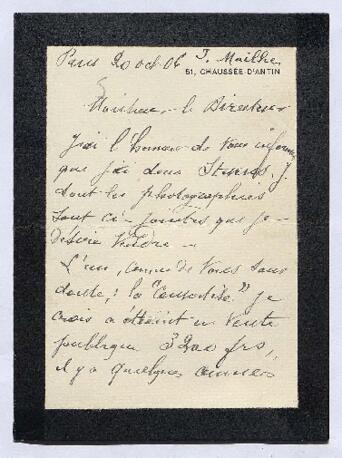 Paris 20 oct. 06 J. Mailhe
51, CHAUSSÉE D'ANTIN
Monsieur le Directeur
J'ai l'honneur de vous informer
que j'ai deux J.
dont les photographies
sont ci-jointes que je
désire vendre
L'un, connu de vous sans
doute, : la " " je
crois a atteint en vente
publique 3200 frs,
il y a quelques années